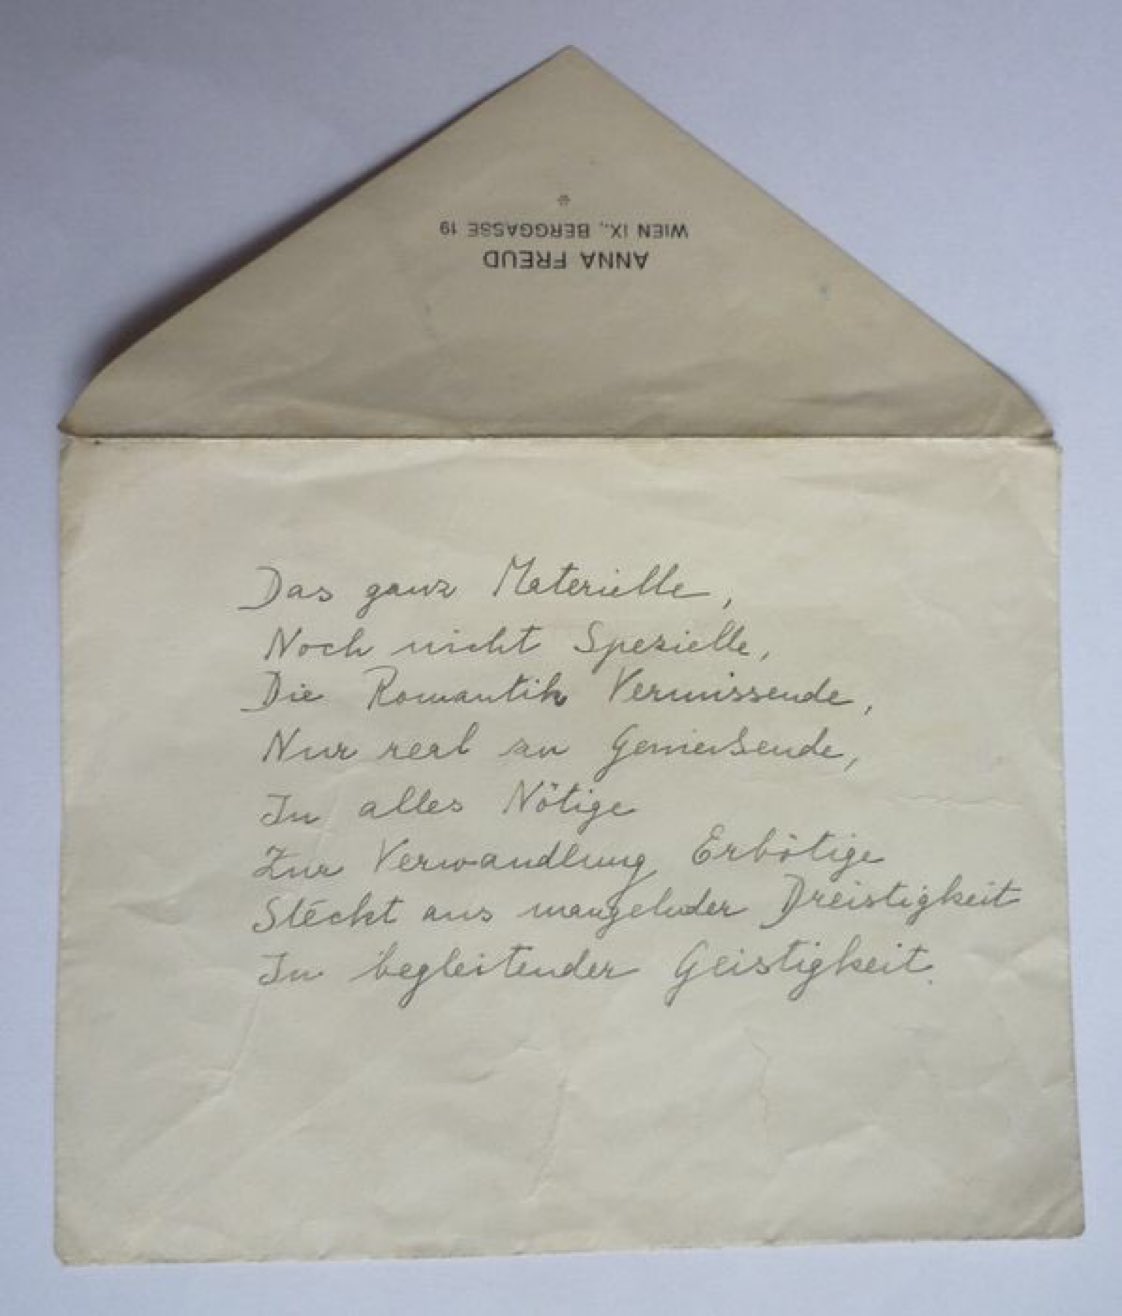 ANNA FREUD
WIEN IX., BERGGASSE 19
*
Das ganz Materielle,
Noch nicht Spezielle,
Die Romantik Vermissende,
Nur real zu Genießende,
In alles Nötige
Zur Verwandlung Erbötige
Steckt aus mangelnder Dreistigkeit
In begleitender Geistigkeit.